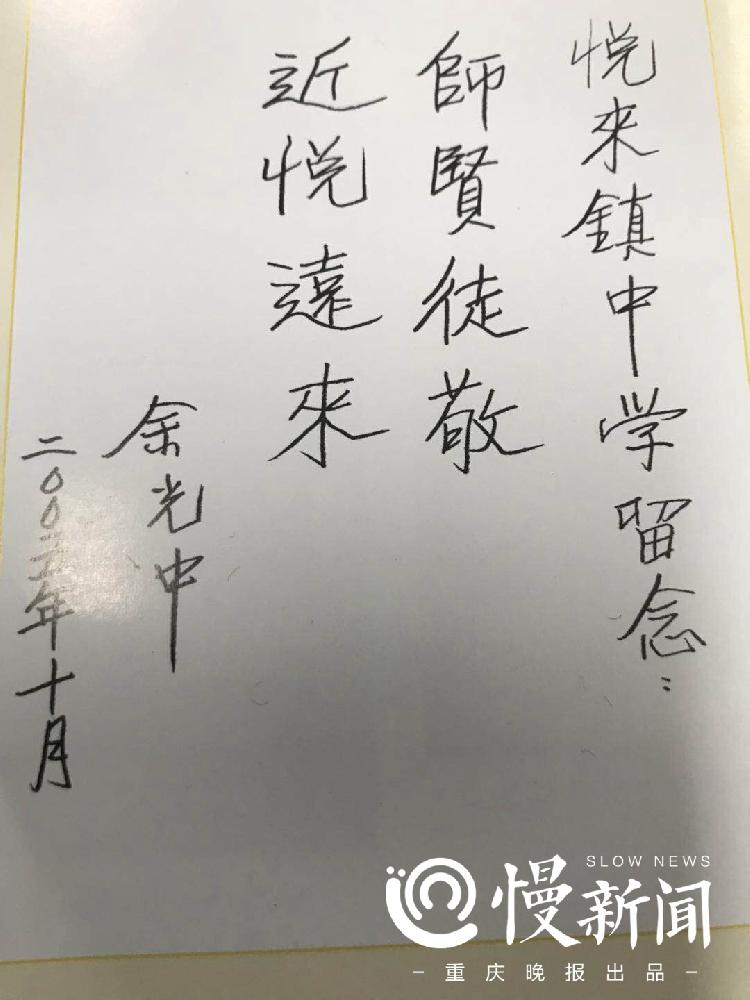 悦來鎮中学留念：
師賢徒敬
近悦遠來
余光中
二〇〇五年十月
SLOW NEWS
慢新闻
-重庆晚报出品-